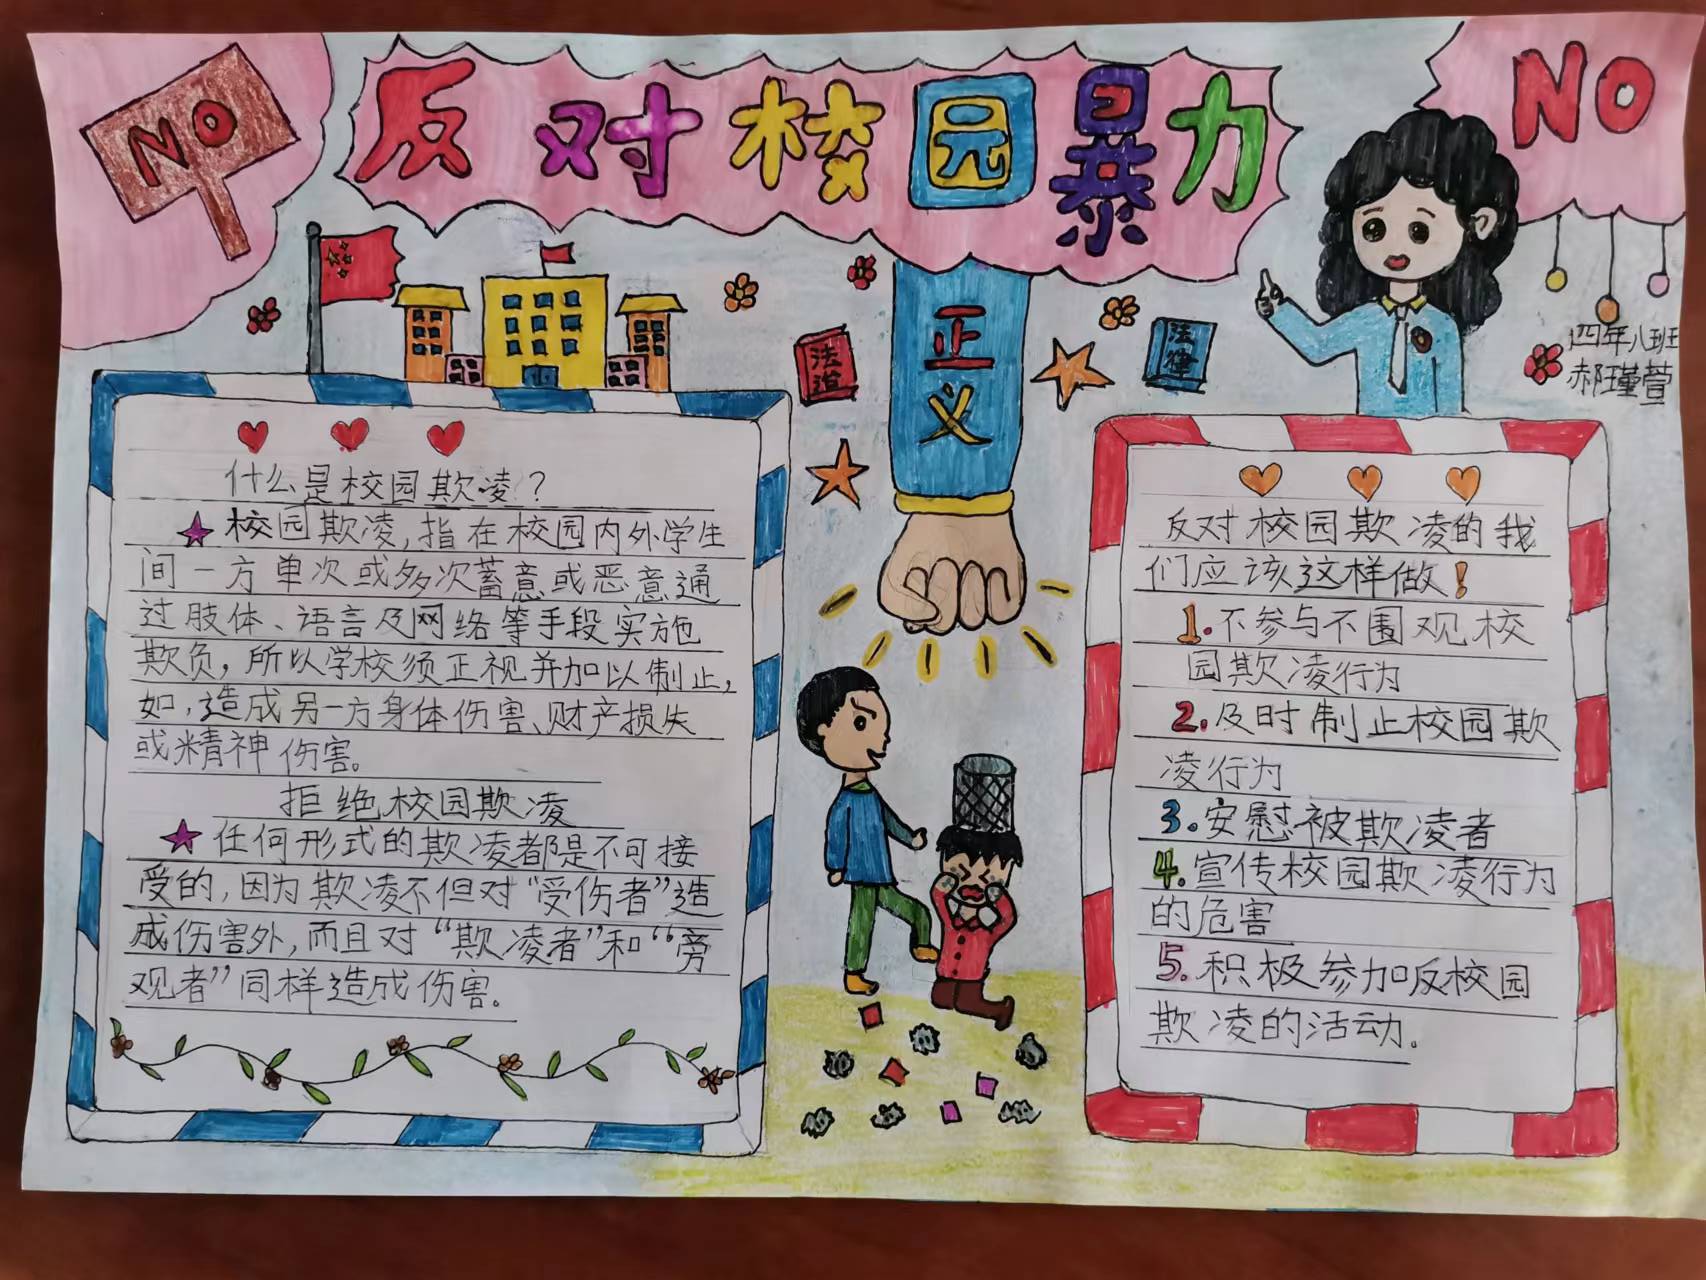 NO
反对校园暴力
NO
正义
法道
法律
四年八班
郝瑾萱
什么是校园欺凌？
校园欺凌，指在校园内外学生
间一方单次或多次蓄意或恶意通
过肢体、语言及网络等手段实施
欺负，所以学校须正视并加以制止，
如，造成另一方身体伤害、财产损失
或精神伤害。
拒绝校园欺凌
任何形式的欺凌都是不可接
受的，因为欺凌不但对“受伤者”造
成伤害外，而且对“欺凌者”和“旁
观者”同样造成伤害。
反对校园欺凌的我
们应该这样做！
1.不参与不围观校
园欺凌行为
2.及时制止校园欺
凌行为
3.安慰被欺凌者
4.宣传校园欺凌行为
的危害
5.积极参加反校园
欺凌的活动。